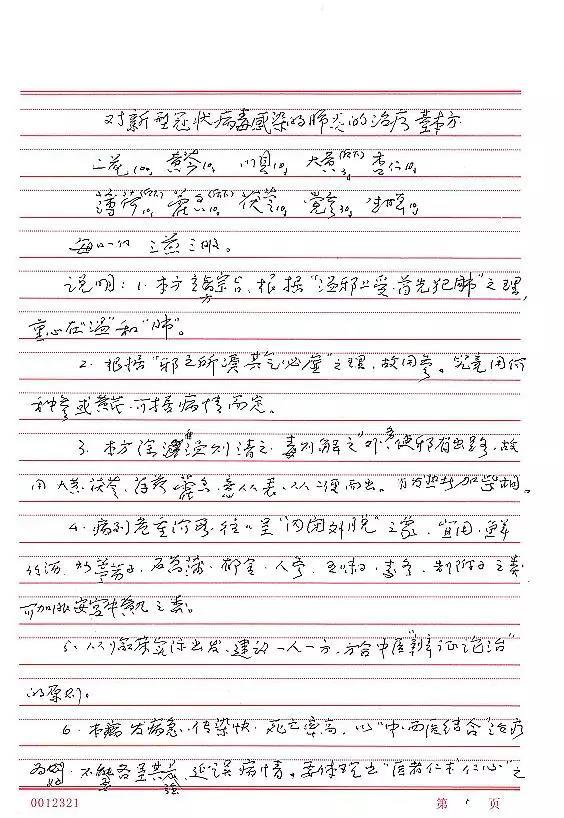 对新型冠状病毒感染的肺炎的治疗基本方
二花10g 黄芩10g 川贝10g 大黄(后下)3g 杏仁10g
薄荷(后下)10g 藿香(后下)10g 茯苓10g 党参30g 10g
每日一付 三煎三服。
说明:1、本方立方宗旨,根据"温邪上受,首先犯肺"之理,
重心在"温"和"肺"。
2、根据"邪之所凑其气必虚"之理,故用参。究竟用何
种参或黄芪,可据病情而定。
3、本方除"温则清之,毒则解之"外,使邪有出路,故
用大黄、茯苓、薄荷、藿香,意从表、从二便而出。
4、病列危重阶段,往往呈"内闭外脱"之象,宜用鲜
竹沥、石菖蒲、郁金、人参、五味子、麦冬、制附子之类
可加服安宫牛黄丸之类。
5、从临床实际出发,建议一人一方,方合中医"辨证论治"
的原则。
6、本病发病急、传染快、死亡率高,以"中西医结合"治疗
为好,不能各呈其,延误病情。要体现出"医者仁术仁心"之
0012321 第 1 页